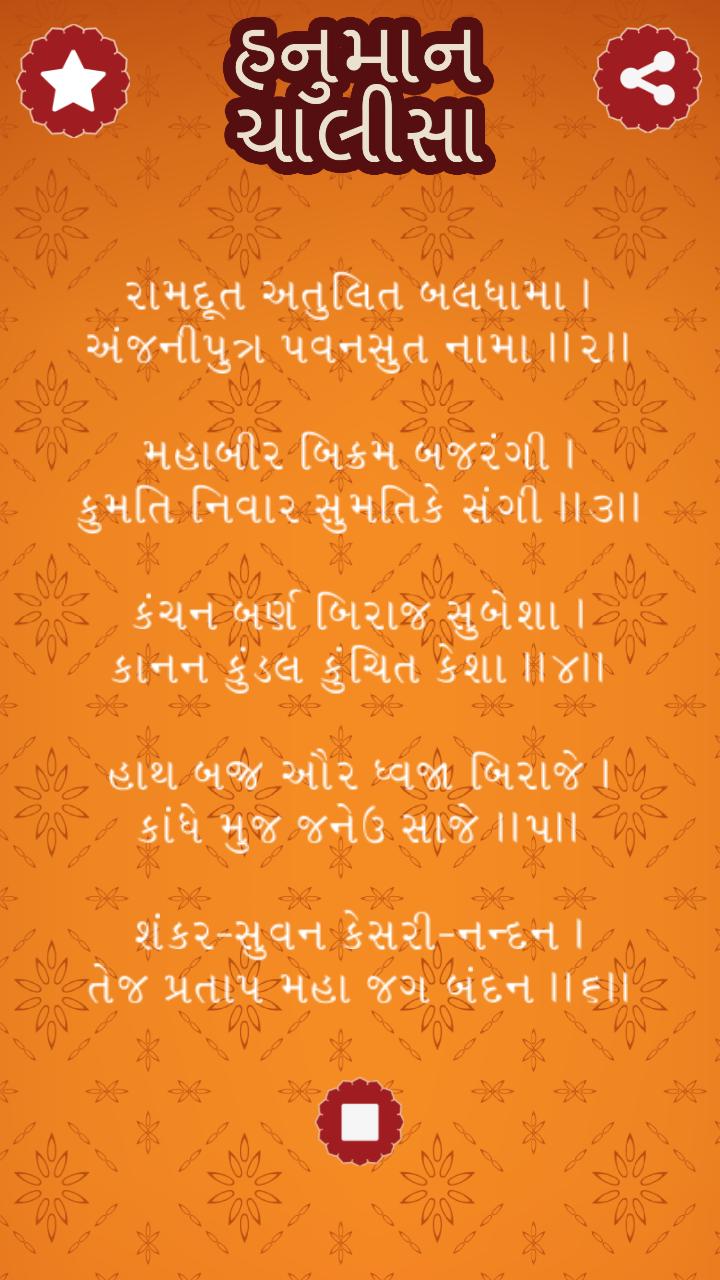 હનુમાન
ચાલીસા
રામદૂત અતુલિત બલધામા ।
અંજનીપુત્ર પવનસુત નામા ।।૨।।
મહાબીર બિક્રમ બજરંગી ।
કુમતિ નિવાર સુમતિકે સંગી ।।૩।।
કંચન બર્ણ બિરાજ સુબેશા ।
કાનન કુંડલ કુંચિત કેશા ।।૪।।
હાથ બજ્ર ઔર ધ્વજા બિરાજે ।
કાંધે મુજ જનેઉ સાજે ।।૫।।
શંકર-સુવન કેસરી-નન્દન ।
તેજ પ્રતાપ મહા જગ બંદન ।।૬।।